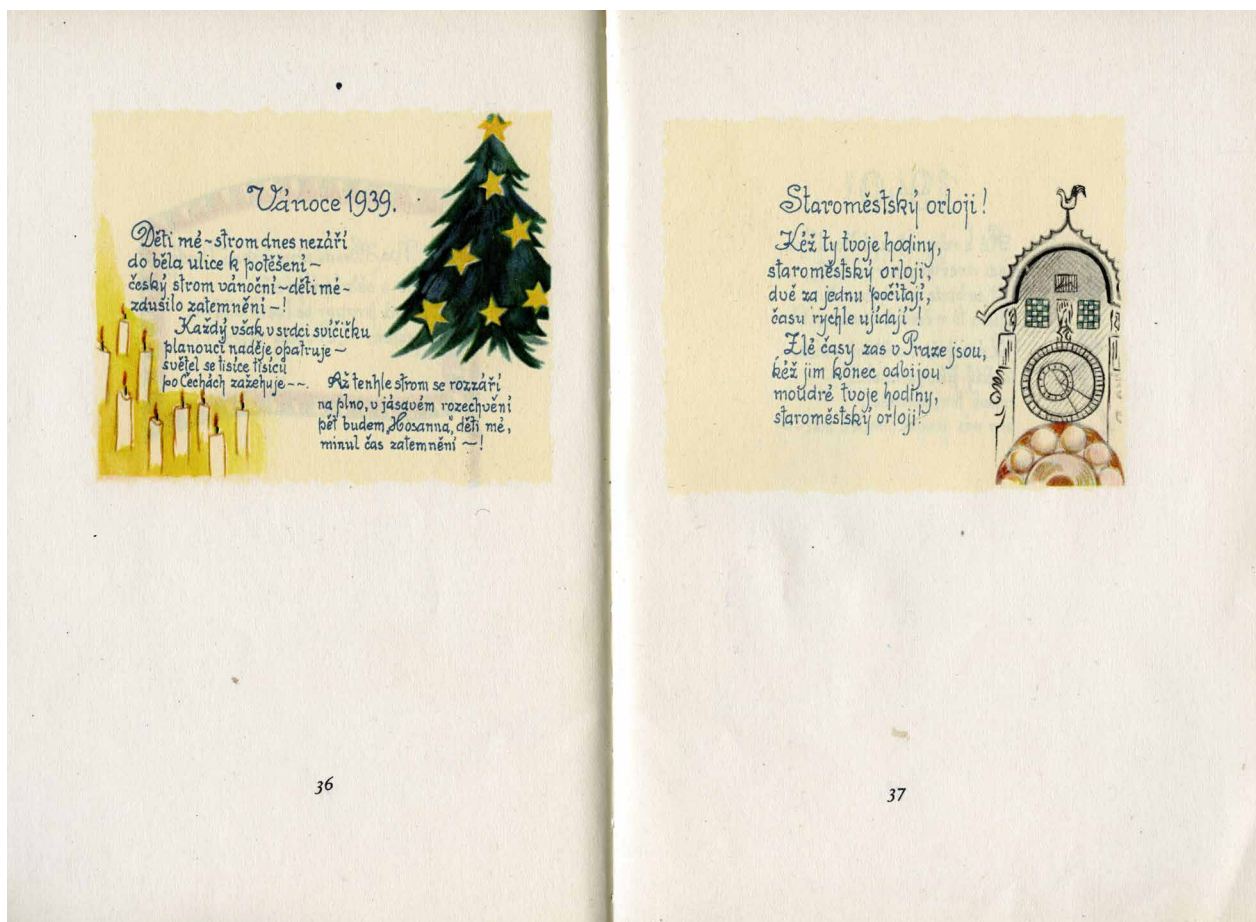 Vánoce 1939.
Děti mé ~ strom dnes nezáří
do běla ulice k potěšení ~
český strom vánoční ~ děti mé ~
zdusilo zatemnění ~!
Každý však v srdci svíčičku
planoucí naděje opatruje ~
světel se tisíce tisíců
po Čechách zažehuje ~~.
Až tenhle strom se rozzáří
na plno, v jásavém rozechvění
pět budem „Hosanna", děti mé,
minul čas zatemnění ~!
36
Staroměstský orloji!
Kéž ty tvoje hodiny,
staroměstský orloji,
dvě za jednu počítají,
času rychle ujídají!
Zlé časy zas v Praze jsou,
kéž jim konec odbijou
moudré tvoje hodiny,
staroměstský orloji!
37